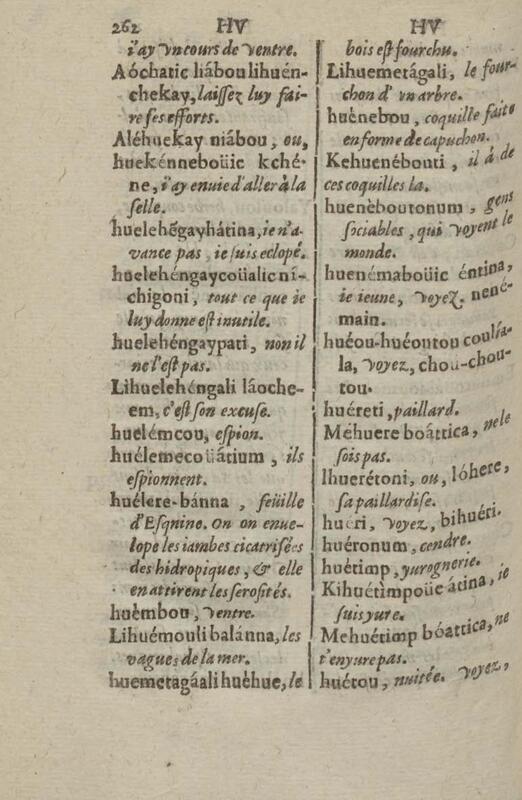 262 HV HV
i'ay vn cours de ventre.
Aóchatic liábou lihuén-
chekay, laissez luy fai-
re ses efforts.
Aléhuekay niábou, ou,
huekénneboüic kché-
ne, i'ay enuie d'aller à la
selle.
huelehẽgayhátina, ie n'a-
vance pas, ie suis eclopé.
huelehéngaycoüalic ní-
chigoni, tout ce que ie
luy donne est inutile.
huelehéngaypati, non il
ne l'est pas.
Lihuelehéngali láoche-
em, c'est son excuse.
huelémcou, espion.
huélemecoüátium, ils
espionnent.
huélere-bánna, feüille
d'Esqnine. On on enue-
lope les iambes cicatrisées
des hidropiques, & elle
en attirent les serosités.
huèmbou, ventre.
Lihuémouli balánna, les
vagues de la mer.
huemetagáali huèhue, le
bois est fourchu.
Lihuemetágali, le four-
chon d'vn arbre.
huènebou, coquille faite
en forme de capuchon.
Kehuenébouti, il á de
ces coquilles la.
huenèboutonum, gens
sociables, qui voyent le
monde.
huenémaboüic éntina,
ie ieune, voyez. nené-
main.
huéou-huéoutou coulía-
la, voyez, chou-chou-
tou.
huéreti, paillard.
Méhuere boáttica, ne le
sois pas.
lhuerétoni, ou, lóhere,
sa paillardise.
hueri, voyez, bihuéri.
huéronum, cendre.
huétimp, yurognerie.
Kihuétìmpoüe átina, ie
suis yure.
Mehuétimp bóattica, ne
t'enyure pas.
huétou, nuitée. voyez,